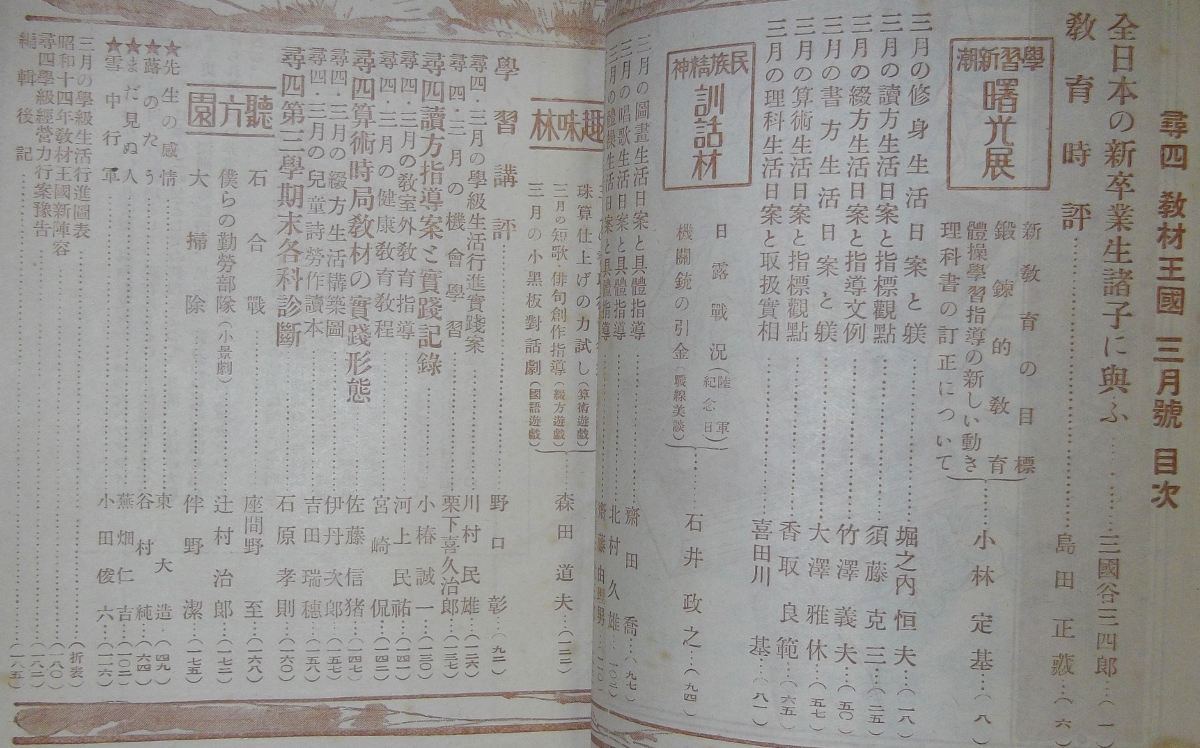 尋四 教材王國 三月號 目次
全日本の新卒業生諸子に與ふ……三國谷三四郎…(一)
教育時評……島田正蔵…(六)
學習新潮 曙光展
新教育の目標
鍛鍊的教育
體操學習指導の新しい動き
理科書の訂正について
……小林定基…(八)
三月の修身生活日案と躾……堀之內恒夫…(一八)
三月の讀方生活日案と指標觀點……須藤克三…(二五)
三月の綴方生活日案と指導文例……竹澤義夫…(五〇)
三月の書方生活日案と躾……大澤雅休…(五七)
三月の算術生活日案と指標觀點……香取良範…(六五)
三月の理科生活日案と取扱實相……喜田川基…(八一)
民族精神 訓話材
日露戰況(陸軍紀念日)
機關銃の引金(戰線美談)
……石井政之…(九四)
三月の圖畫生活日案と具體指導……齋田喬…(九七)
三月の唱歌生活日案と具體指導……北村久雄
趣味林
珠算仕上げの力試し(算術遊戲)
三月の短歌・俳句創作指導(綴方遊戲)
三月の小黑板對話劇(國語遊戲)
……森田道夫…(一二二)
學習講評……野口彰…(九二)
尋四・三月の學級生活行進實踐案……川村民雄…(一二六)
尋四・三月の機會學習……栗下喜久治郎…(一三七)
尋四讀方指導案と實踐記錄……小椿誠一…(一三〇)
尋四・三月の教室外教育指導……河上民祐…(一三六)
尋四・三月の健康教育教程……宮崎侃…(一四二)
尋四算術時局教材の實踐形態……佐藤信猪…(一四七)
尋四・三月の綴方生活構築圖……伊丹次郎…(一五四)
尋四・三月の兒童詩勞作讀本……吉田瑞穗…(一五八)
尋四第三學期末各科診斷……石原孝則…(一六〇)
聽方園
石合戰……座間野至…(一六八)
僕らの勤勞部隊(小景劇)……辻村治郎…(一七二)
大掃除……伴野潔…(一七五)
★先生の感情……東大造…(四九)
★蕗のたう……谷村純…(六四)
★まだ見ぬ人……蕪畑仁吉…(一〇二)
★雪中行軍……小田俊六…(一一六)
三月の學級生活行進圖表……(折表)
昭和十四年教材王國新陣容……(一八〇)
尋四學級經營力行案豫告……(一八二)
編輯後記……(一八五)